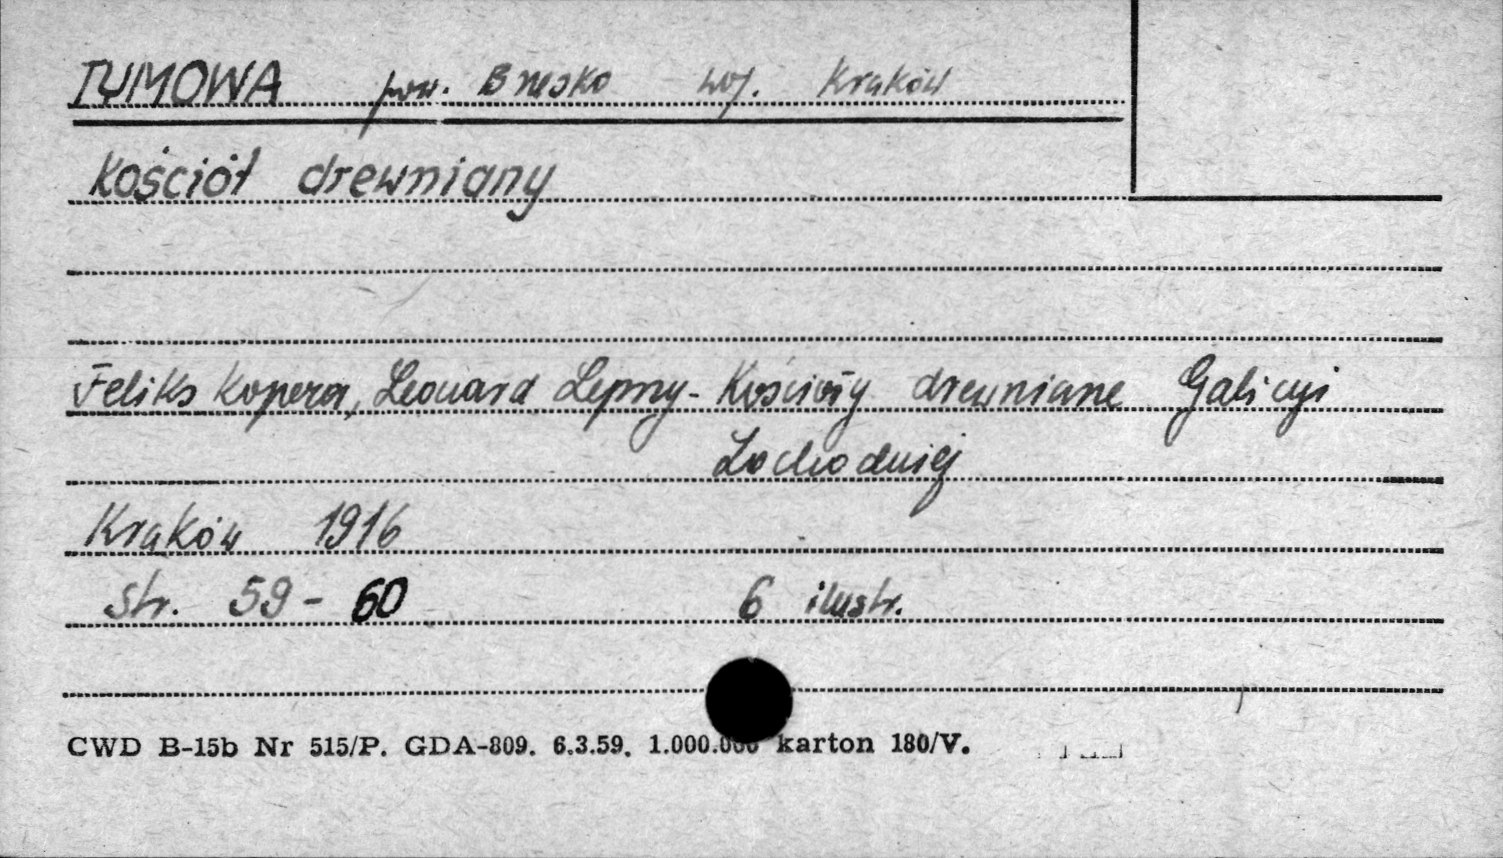 TYMOWA pow. Brzesko woj. Kraków
Kościół drewniany
Feliks Kopera, Leonard Lepszy - Kościoły drewniane Galicyi
Zachodniej
Kraków 1916
str. 59 - 60 6 ilustr.
CWD B-15b Nr 515/P. GDA-809. 6.3.59. 1.000.000 karton 180/V.